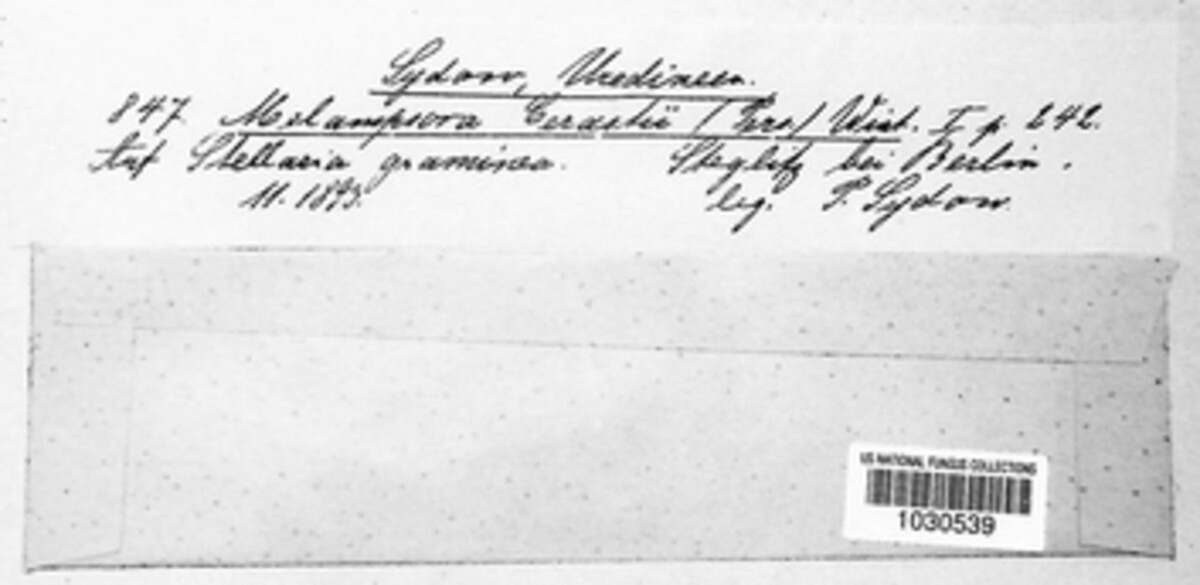 Sydow, Uredineen.
847 Melampsora Cerastii (Pers.) Wint. I p. 242.
Auf Stellaria graminea. Steglitz bei Berlin.
11. 1893. leg. P. Sydow.
US NATIONAL FUNGUS COLLECTIONS
1030539